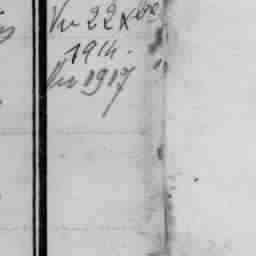 Vu 22 Xbre
1914.
Vu 1917